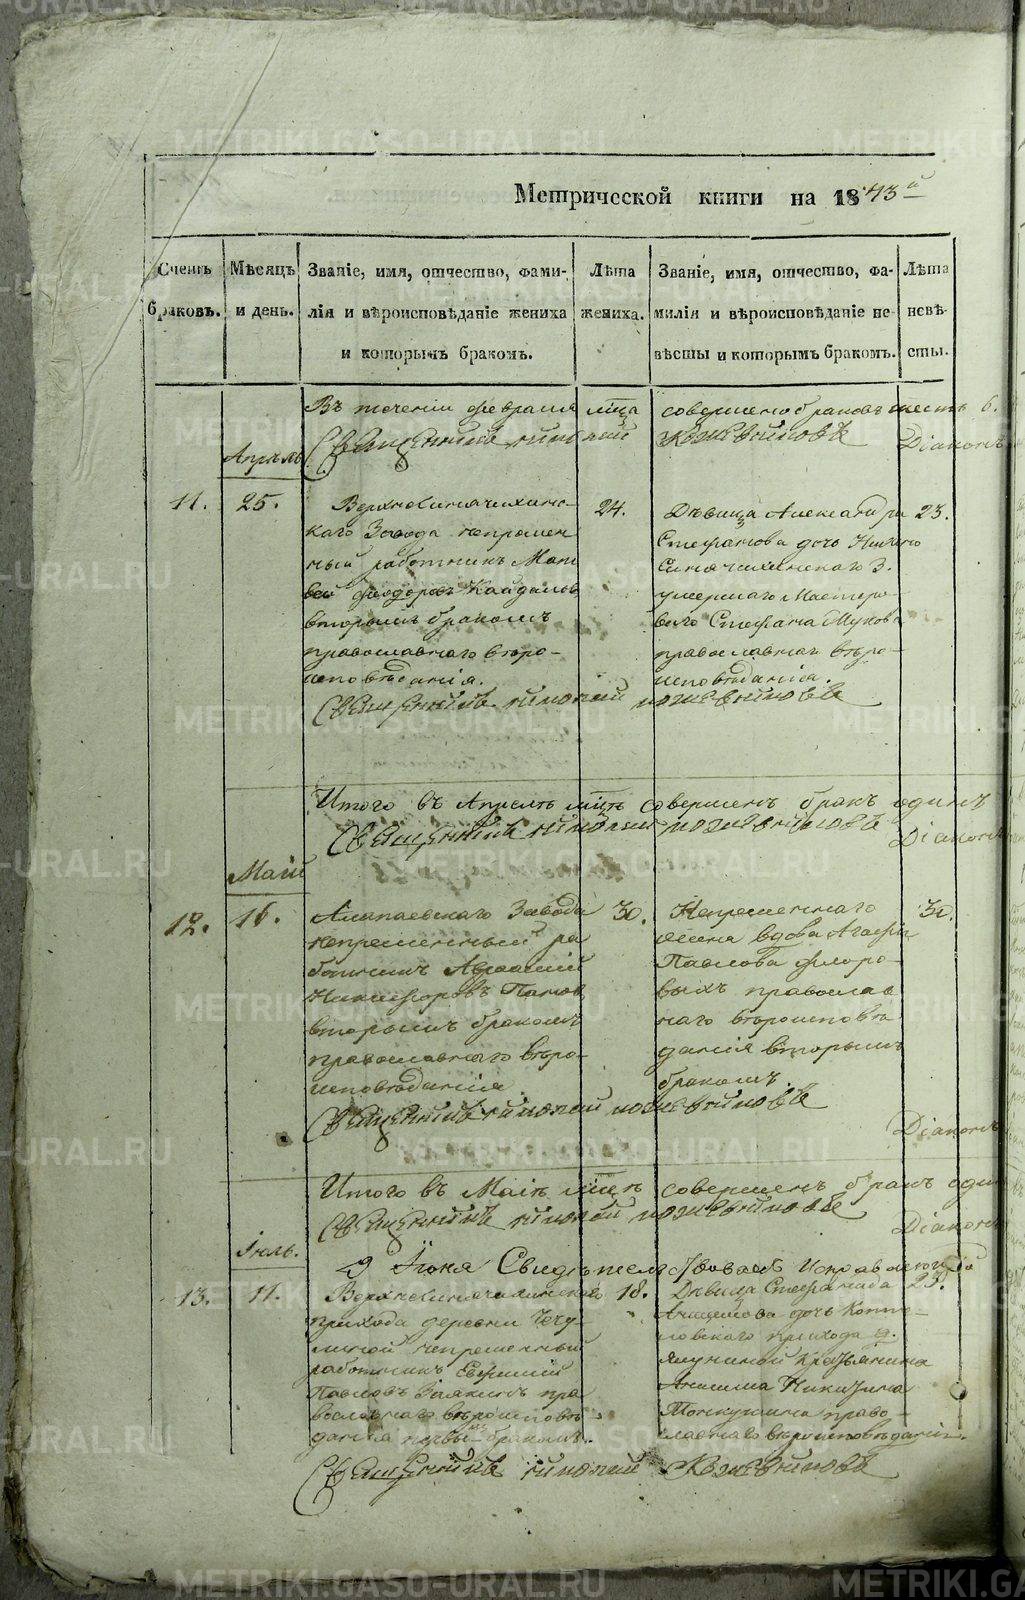 Метрической книги на 1843й
Счетъ браковъ.
Мѣсяцъ и день.
Званіе, имя, отчество, фами-
лія и вѣроисповѣданіе жениха
и которымъ бракомъ.
Лѣта жениха.
Званіе, имя, отчество, фа-
милія и вѣроисповѣданіе не-
вѣсты и которымъ бракомъ.
Лѣта невѣ-
сты.
Въ теченіи февраля мца совершено браковъ шесть 6.
Священникъ Николай Кожевниковъ
Діаконъ
Апрѣль
11.
25.
Верхнесинячихинс-
каго Завода непремен
ный работникъ Мат
вей Феодоровъ Кайдаловъ
вторымъ бракомъ
православнаго вѣро-
исповѣданія.
24.
Дѣвица Александра
Стефанова дочь Нижно
Синячихинскаго З.
умершаго Мастеро-
ваго Стефана
православнаг вѣро-
исповѣданія.
23.
Священникъ Николай Кожевниковъ
Итого въ Апрелѣ мцѣ совершенъ бракъ одинъ
Священникъ Николай Кожевниковъ
Діаконъ
Маій
12.
16.
Алапаевскаго Завода
непременный ра
ботникъ
Никифоровъ
вторымъ бракомъ
православнаго вѣро-
исповѣданія
30.
Непременнаго
жена вдова Агафья
Павлова Флоро-
выхъ православ
наго вѣроисповѣ
данія вторымъ
бракомъ.
30.
Священникъ Николай Кожевниковъ
Діаконъ
Итого въ Маіѣ мцѣ совершенъ бракъ один
Священникъ Николай Кожевниковъ
Діаконъ
9 Іюня Свидѣтельствовалъ
Іюль.
13.
11.
Верхнесинячихинскаго
прихода деревни
непременный
работникъ Евфимій
Павловъ пра
вославнаго вѣроисповѣ
данія первымъ бракомъ.
18.
Дѣвица Стефанида
дочь
прихода д.
Крестьянина
Никитина
право-
славнаго вѣроисповѣданія.
23.
Священникъ Николай Кожевниковъ
METRIKI.GASO-URAL.RU